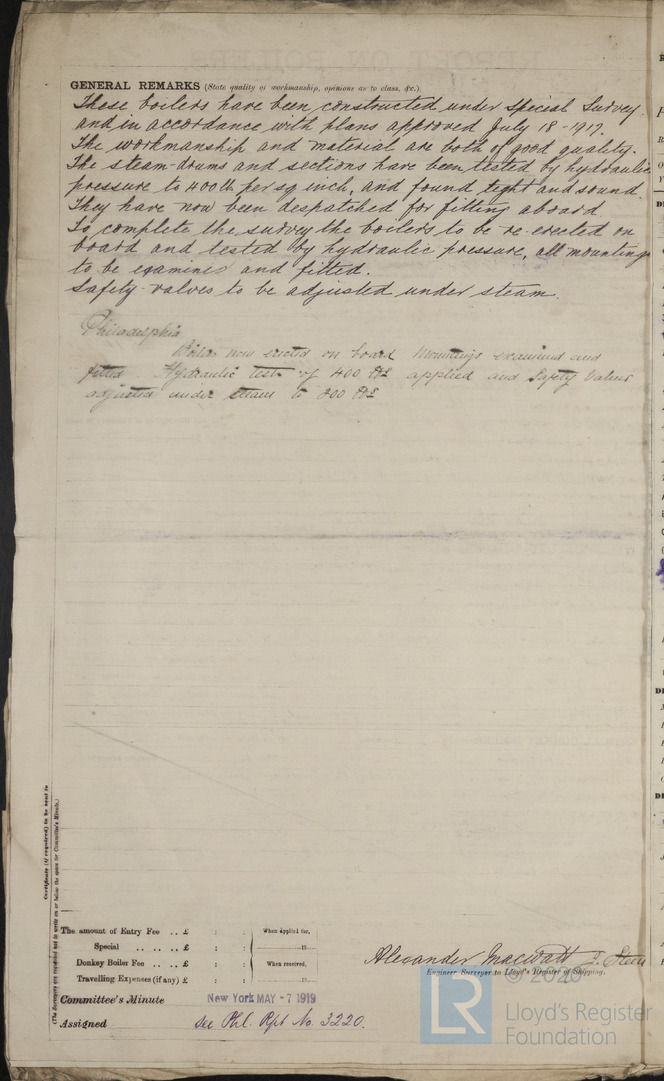 GENERAL REMARKS (State quality of workmanship, opinions as to class, &c.)
These boilers have been constructed under Special Survey
and in accordance with plans approved July 18-1917.
The workmanship and material are both of good quality.
The steam-drums and sections have been tested by hydraulic
pressure to 400 lb per sq inch, and found tight and sound.
They have now been despatched for fitting aboard
To complete the survey the boilers to be re-erected on
board and tested by hydraulic pressure, all mountings
to be examined and fitted.
Safety-valves to be adjusted under steam.
Philadelphia
Boilers now erected on board Mountings examined and
fitted Hydraulic test of 400 lbs applied and Safety Valves
adjusted under steam to 200 lbs
Certificate (if required) to be sent to
(The Surveyors are requested not to write on or below the space for Committee's Minute.)
The amount of Entry Fee .. £ : :
When applied for,
Special .. .. .. £ : :
19
Donkey Boiler Fee .. .. £ : :
When received,
Travelling Expenses (if any) £ : :
19
Alexander Macwatt J. Steen
Engineer Surveyor to Lloyd's Register of Shipping.
Committee's Minute New York MAY -7 1919
Assigned See Phl. Rpt No. 3220.
© 2020
LR
Lloyd's Register
Foundation